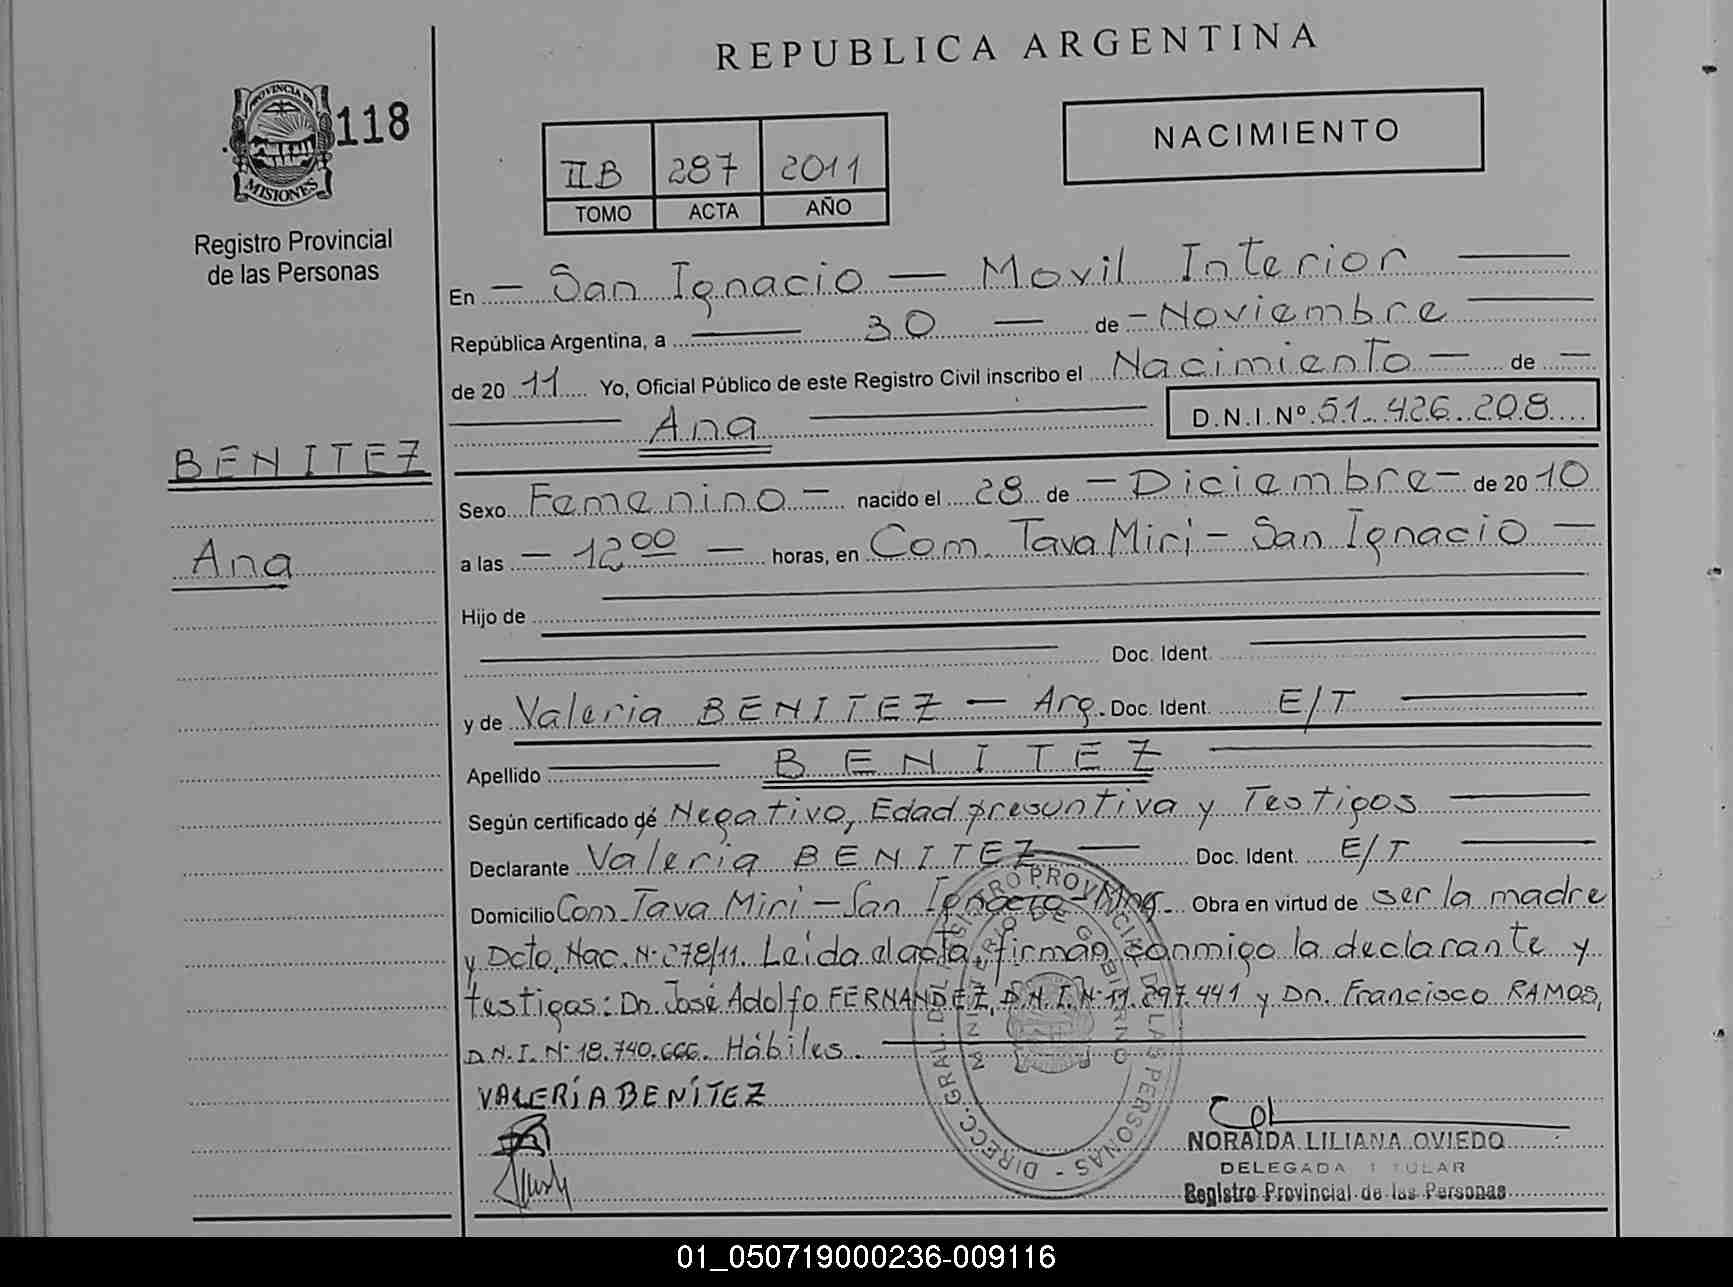 REPUBLICA ARGENTINA
PROVINCIA DE
MISIONES
118
Registro Provincial
de las Personas
II B 287 2011
TOMO ACTA AÑO
NACIMIENTO
En San Ignacio — Movil Interior
República Argentina, a 30 de Noviembre
de 2011 Yo, Oficial Público de este Registro Civil inscribo el Nacimiento de
Ana D.N.I. Nº 51.426.208
BENITEZ
Ana
Sexo Femenino nacido el 28 de Diciembre de 2010
a las 12 00 horas, en Com. Tava Miri - San Ignacio
Hijo de
Doc. Ident.
y de Valeria BENITEZ — Arg. Doc. Ident. E/T
Apellido BENITEZ
Según certificado de Negativo, Edad presuntiva y Testigos
Declarante Valeria BENITEZ Doc. Ident. E/T
Domicilio Com. Tava Miri - San Ignacio - Mnes. Obra en virtud de ser la madre
y Dcto. Nac. Nº 278/11. Leida el acta, firman conmigo la declarante y
testigos: Dn. José Adolfo FERNANDEZ, D.N.I. Nº 11.297.441 y Dn. Francisco RAMOS,
D.N.I. Nº 18.740.666. Hábiles.
VALERÍA BENÍTEZ
DIRECC. GRAL. DEL REGISTRO PROVINCIAL DE LAS PERSONAS
MINISTERIO DE GOBIERNO
NORAIDA LILIANA OVIEDO
DELEGADA TITULAR
Registro Provincial de las Personas
01_050719000236-009116